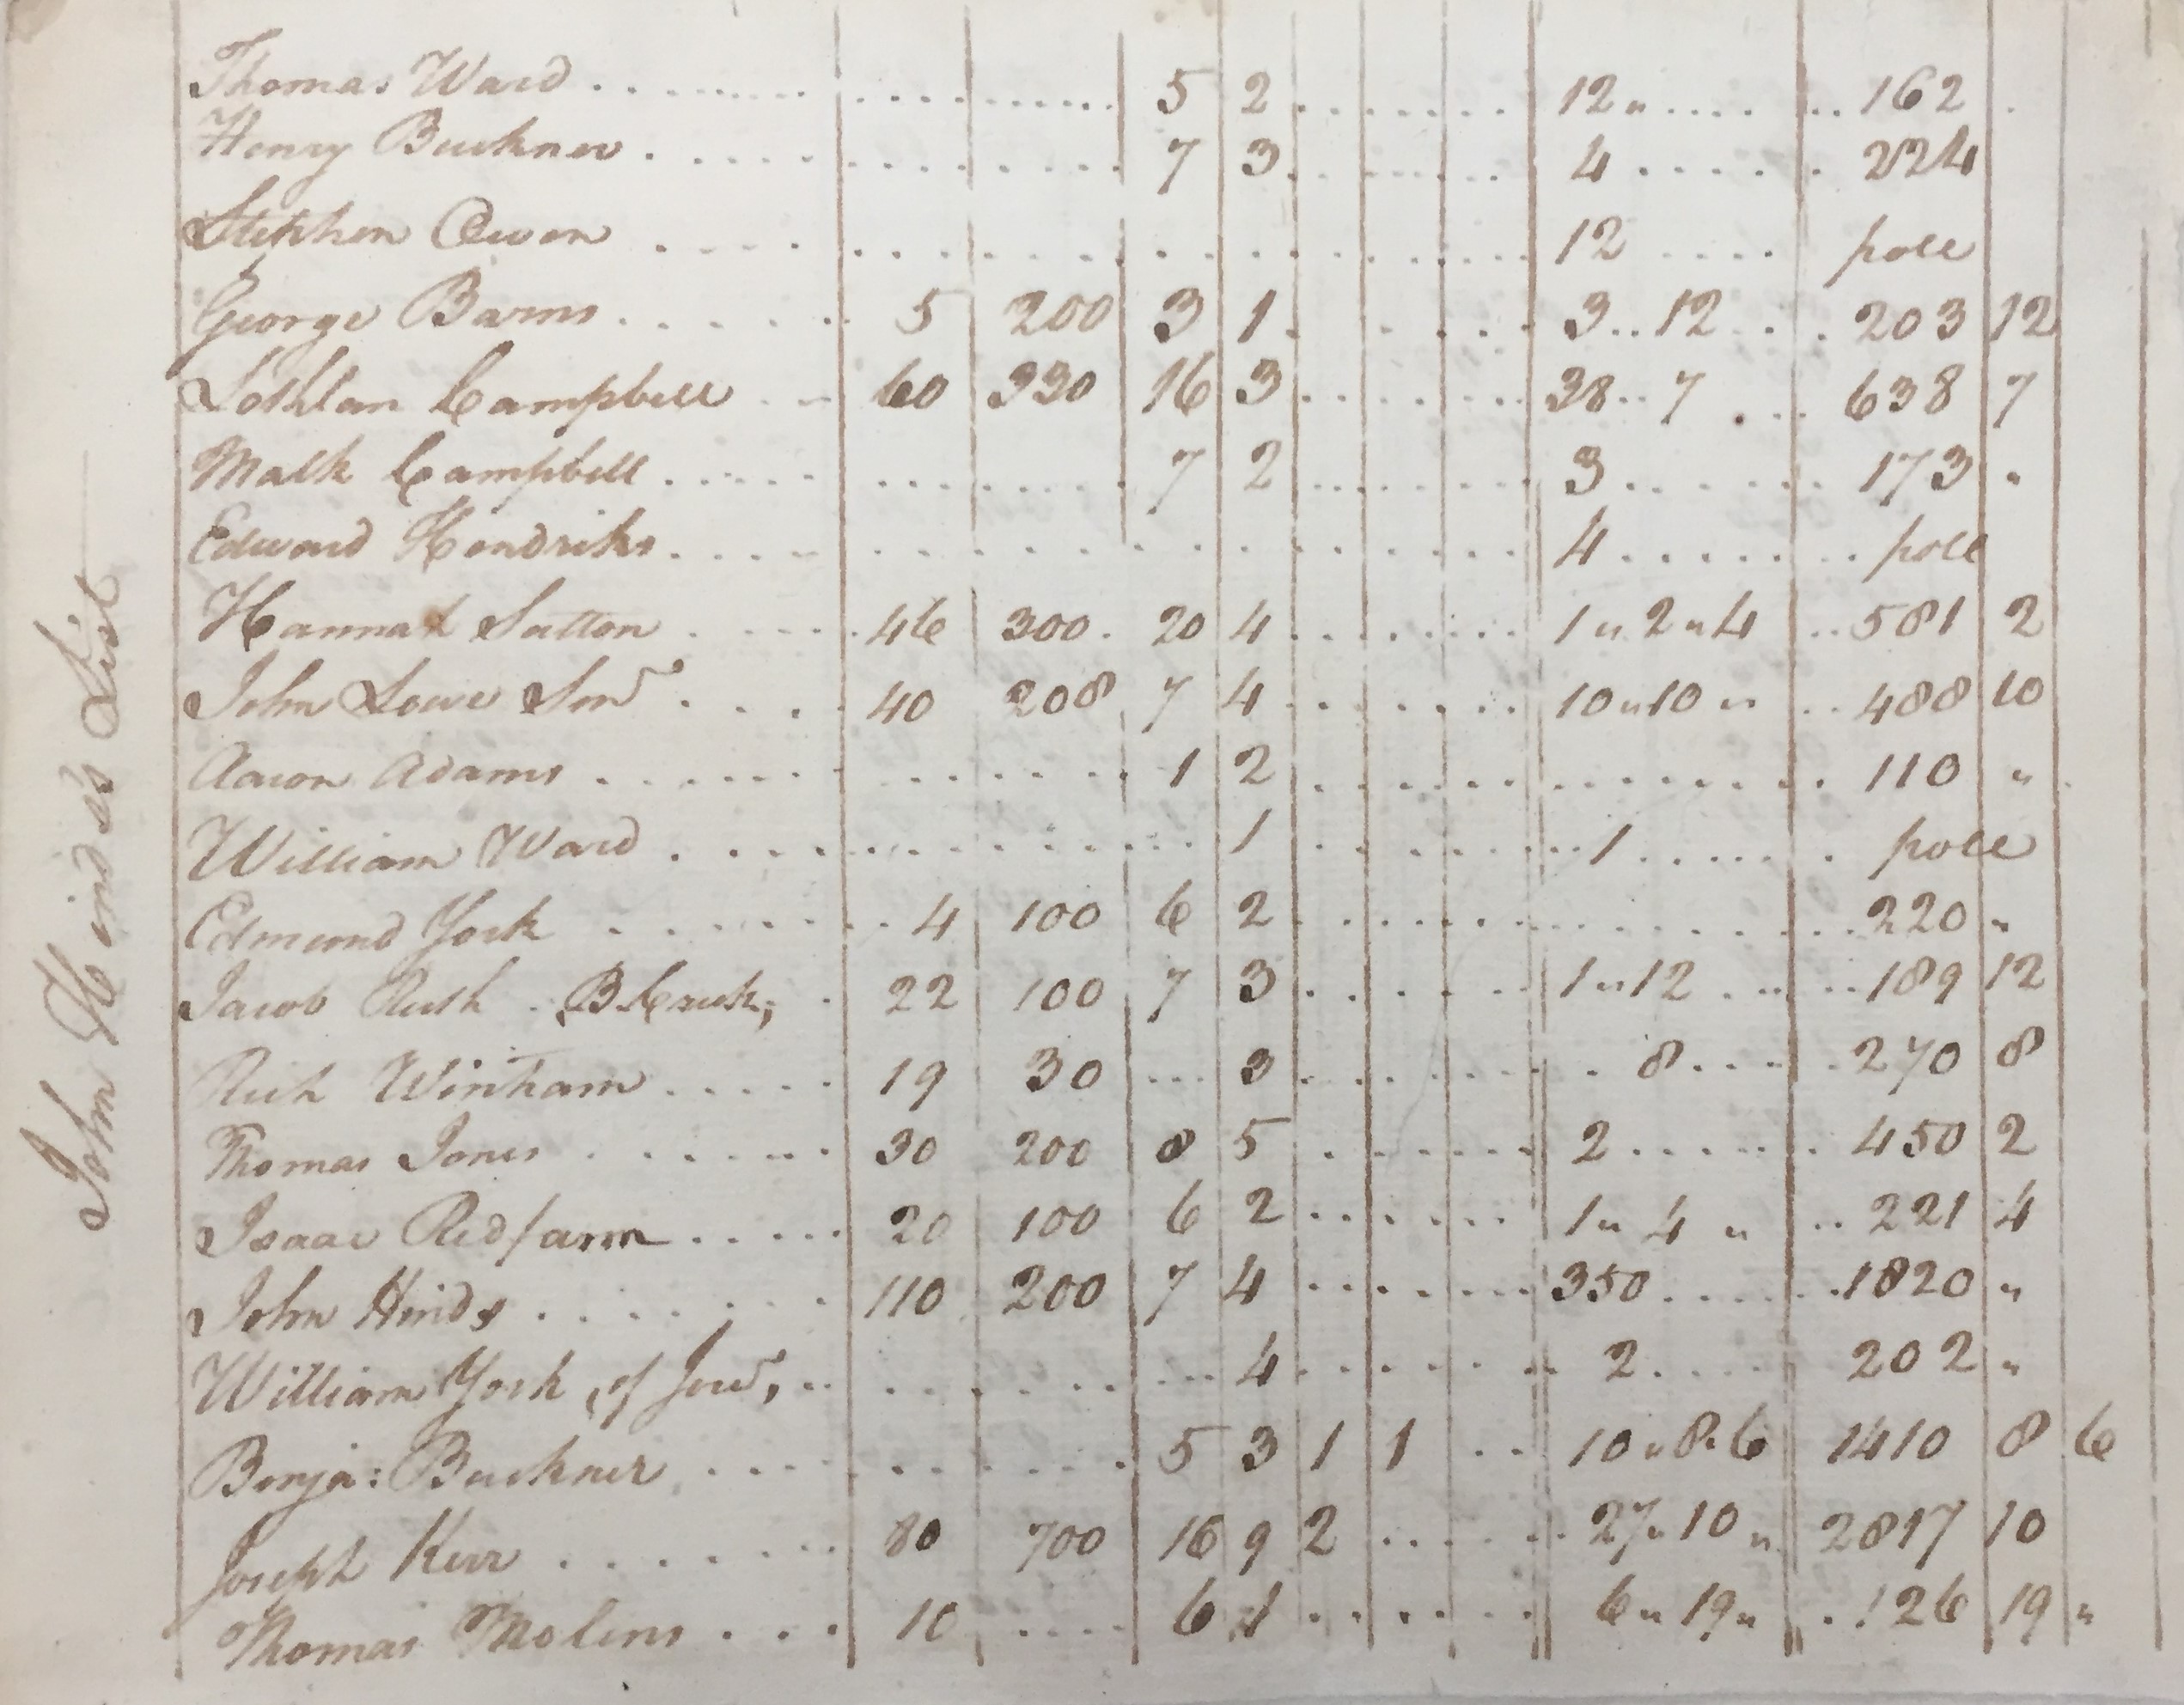 John Hinds's List
Thomas Ward 5 2 12 " 162
Henry Buckner 7 3 4 224
Stephen Owen 12 poll
George Barns 5 200 3 1 3 12 203 12
Lothlan Campbell 60 330 16 3 38 7 638 7
Malk Campbell 7 2 3 173 "
Edward Hendriks 4 poll
Hannah Sutton 46 300 20 4 1 " 2 " 4 581 2
John Lowe Senr 40 208 7 4 10 " 10 " 488 10
Aaron Adams 1 2 110 "
William Ward 1 1 poll
Edmund York 4 100 6 2 220 "
Jacob Rush B. Creek; 22 100 7 3 1 " 12 189 12
Rich Winham 19 30 3 8 270 8
Thomas Jones 30 200 8 5 2 450 2
Isaac Redfarn 20 100 6 2 1 " 4 " 221 4
John Hinds 110 200 7 4 350 1820 "
William York of 4 2 202 "
Benja: Buckner 5 3 1 1 10 " 8 " 6 1410 8 6
Joseph Kerr 80 700 16 9 2 27 " 10 " 2817 10
Thomas Molins 10 6 6 " 19 " 126 19 "